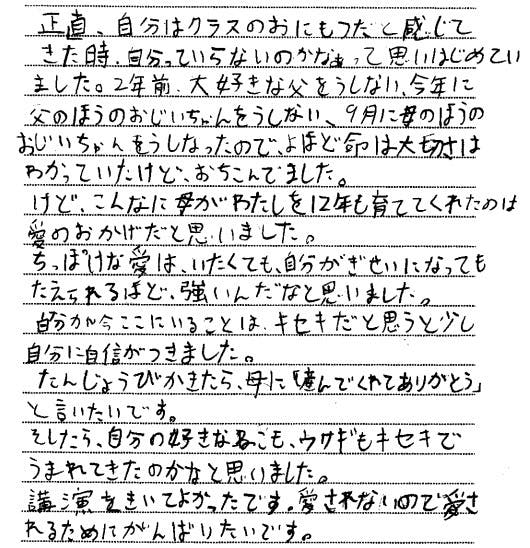 正直、自分はクラスのおにもつだと感じて
きた時、自分っていらないのかなぁって思いはじめてい
ました。2年前、大好きな父をうしない、今年に
父のほうのおじいちゃんをうしない、9月に母のほうの
おじいちゃんをうしなったので、よほど命は大切さは
わかっていたけど、おちこんでました。
けど、こんなに母がわたしを12年も育ててくれたのは
愛のおかげだと思いました。
ちっぽけな愛は、いたくても、自分がぎせいになっても
たえられるほど、強いんだなと思いました。
自分が今ここにいることは、キセキだと思うと少し
自分に自信がつきました。
たんじょうびがきたら、母に「産んでくれてありがとう」
と言いたいです。
そしたら、自分の好きなねこも、ウサギもキセキで
うまれてきたのかなと思いました。
講演をきいてよかったです。愛されないので愛さ
れるためにがんばりたいです。